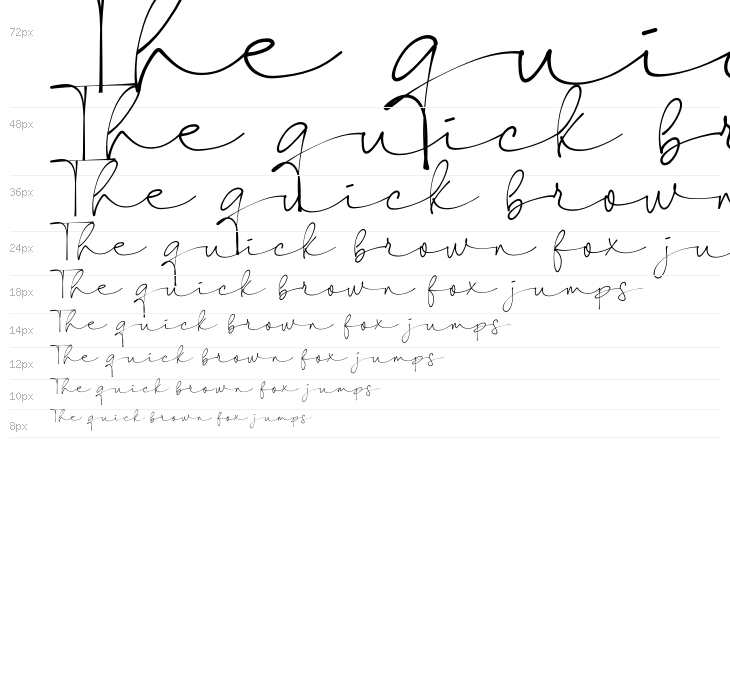 72px The quic
48px The quick br
36px The quick brown
24px The quick brown fox ju
18px The quick brown fox jumps
14px The quick brown fox jumps
12px The quick brown fox jumps
10px The quick brown fox jumps
8px The quick brown fox jumps